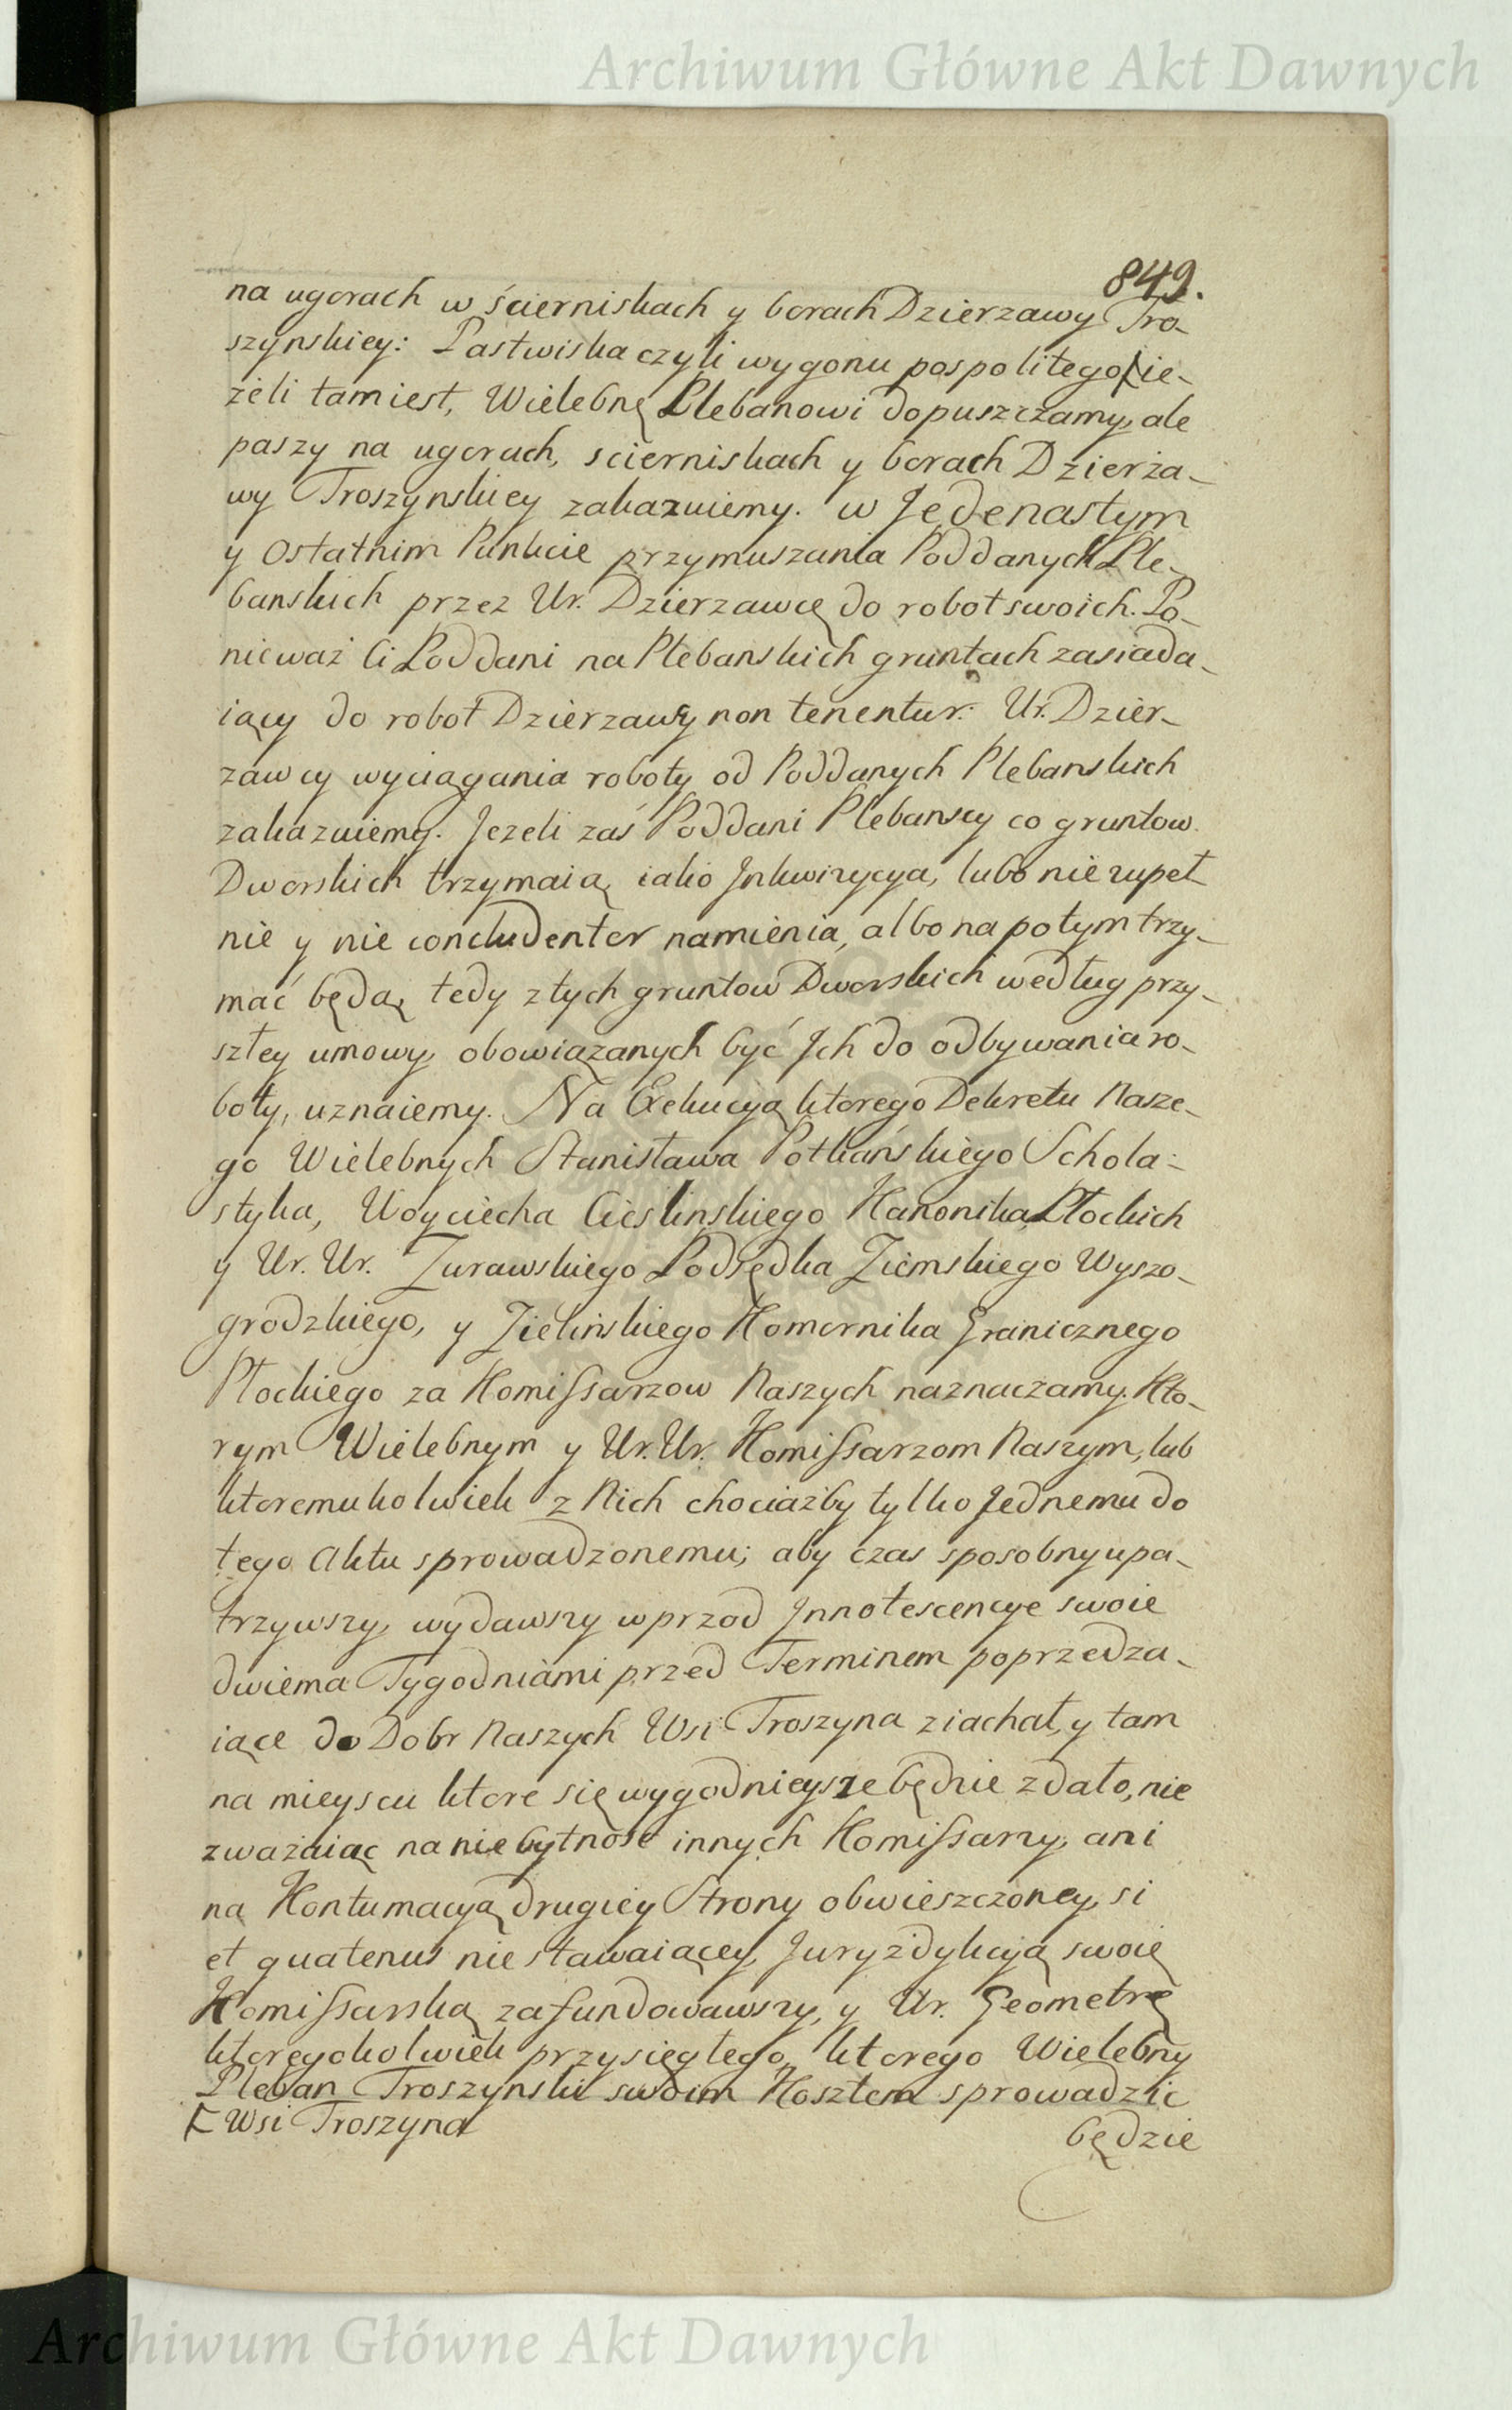 Archiwum Główne Akt Dawnych
849.
na ugorach w ścierniskach y borach Dzierzawy Tro-
szynskiey: Pastwiska czyli wygonu pospolitego [ie-
żeli tam iest, Wielebnę Plebanowi dopuszczamy, ale
paszy na ugorach, scierniskach y borach Dzierża-
wy Troszynskiey zakazuiemy. w Jedenastym
y Ostatnim Punkcie przymuszania Poddanych Ple-
banskich przez Ur. Dzierzawcę do robot swoich. Po-
nieważ Ci Poddani na Plebanskich gruntach zasiada-
iący do robot Dzierzawy non tenentur: Ur. Dzier-
zawcy wyciągania roboty od Poddanych Plebanskich
zakazuiemy. Jezeli zaś Poddani Plebanscy co gruntow
Dworskich trzymaią, iako Jnkwizycya, lubo nie zupeł
nie y nie concludenter namienia, albo na potym trzy-
mać będą, tedy z tych gruntow Dworskich według przy-
szłey umowy, obowiązanych być Jch do odbywania ro-
boty, uznaiemy. Na Exekucyą ktorego Dekretu Nasze-
go Wielebnych Stanisława Potkańskiego Schola-
styka, Woyciecha Cieslinskiego Kanonika, Płockich
y Ur. Ur. Zurawskiego Podsędka Ziemskiego Wyszo-
grodzkiego, y Zielińskiego Komornika Granicznego
Płockiego za Komissarzow Naszych naznaczamy. Kto-
rym Wielebnym y Ur. Ur. Komissarzom Naszym, lub
ktoremukolwiek z Nich chociażby tylko Jednemu do
tego Aktu sprowadzonemu; aby czas sposobny upa-
trzywszy, wydawszy wprzod Jnnotescencye swoie
dwiema Tygodniami przed Terminem poprzedza-
iące do Dobr Naszych Wsi Troszyna ziachał, y tam
na mieyscu ktore się wygodnieysze będzie zdało, nie
zważaiąc na niebytność innych Komissarzy, ani
na Kontumacyą drugiey Strony obwieszczoney, si
et quatenus nie stawaiącey, Juryzdykcyą swoię
Komissarską zafundowawszy, y Ur. Geometrę
ktoregokolwiek przysięgłego, ktorego Wielebny
Pleban Troszynski swoim Kosztem sprowadzic
[ Wsi Troszyna
będzie
Archiwum Główne Akt Dawnych